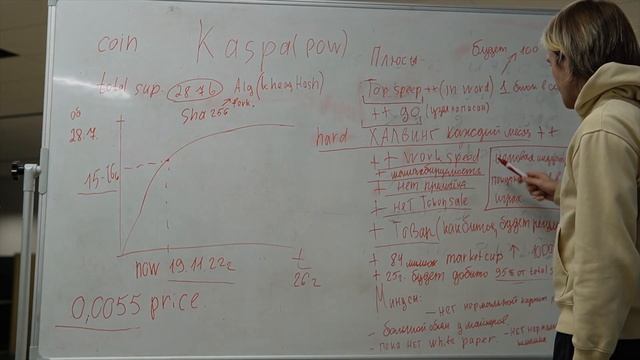 coin Kaspa (pow)
total sup. 28.7б Alg (kheavyHash)
Sha 256 fork.
об
28.7.
15-16б
now 19.11.22г
t
26г
0,0055 price
Плюсы-
будет 100
Top speep ++ (in word) 1 блок в се
++ go
hard ХАЛВИНГ каждый месяц ++
++ Work speed
+ масштабируемость
+ нет премайна
+ нет Token sale
+ Товар (как биткоин, будет
+ 84 милион marketcup ↑
+ 25г. будет добыто 95% от total s
Минусы:
- нет нормальной
- большой обьём у майнеров
- пока нет white paper